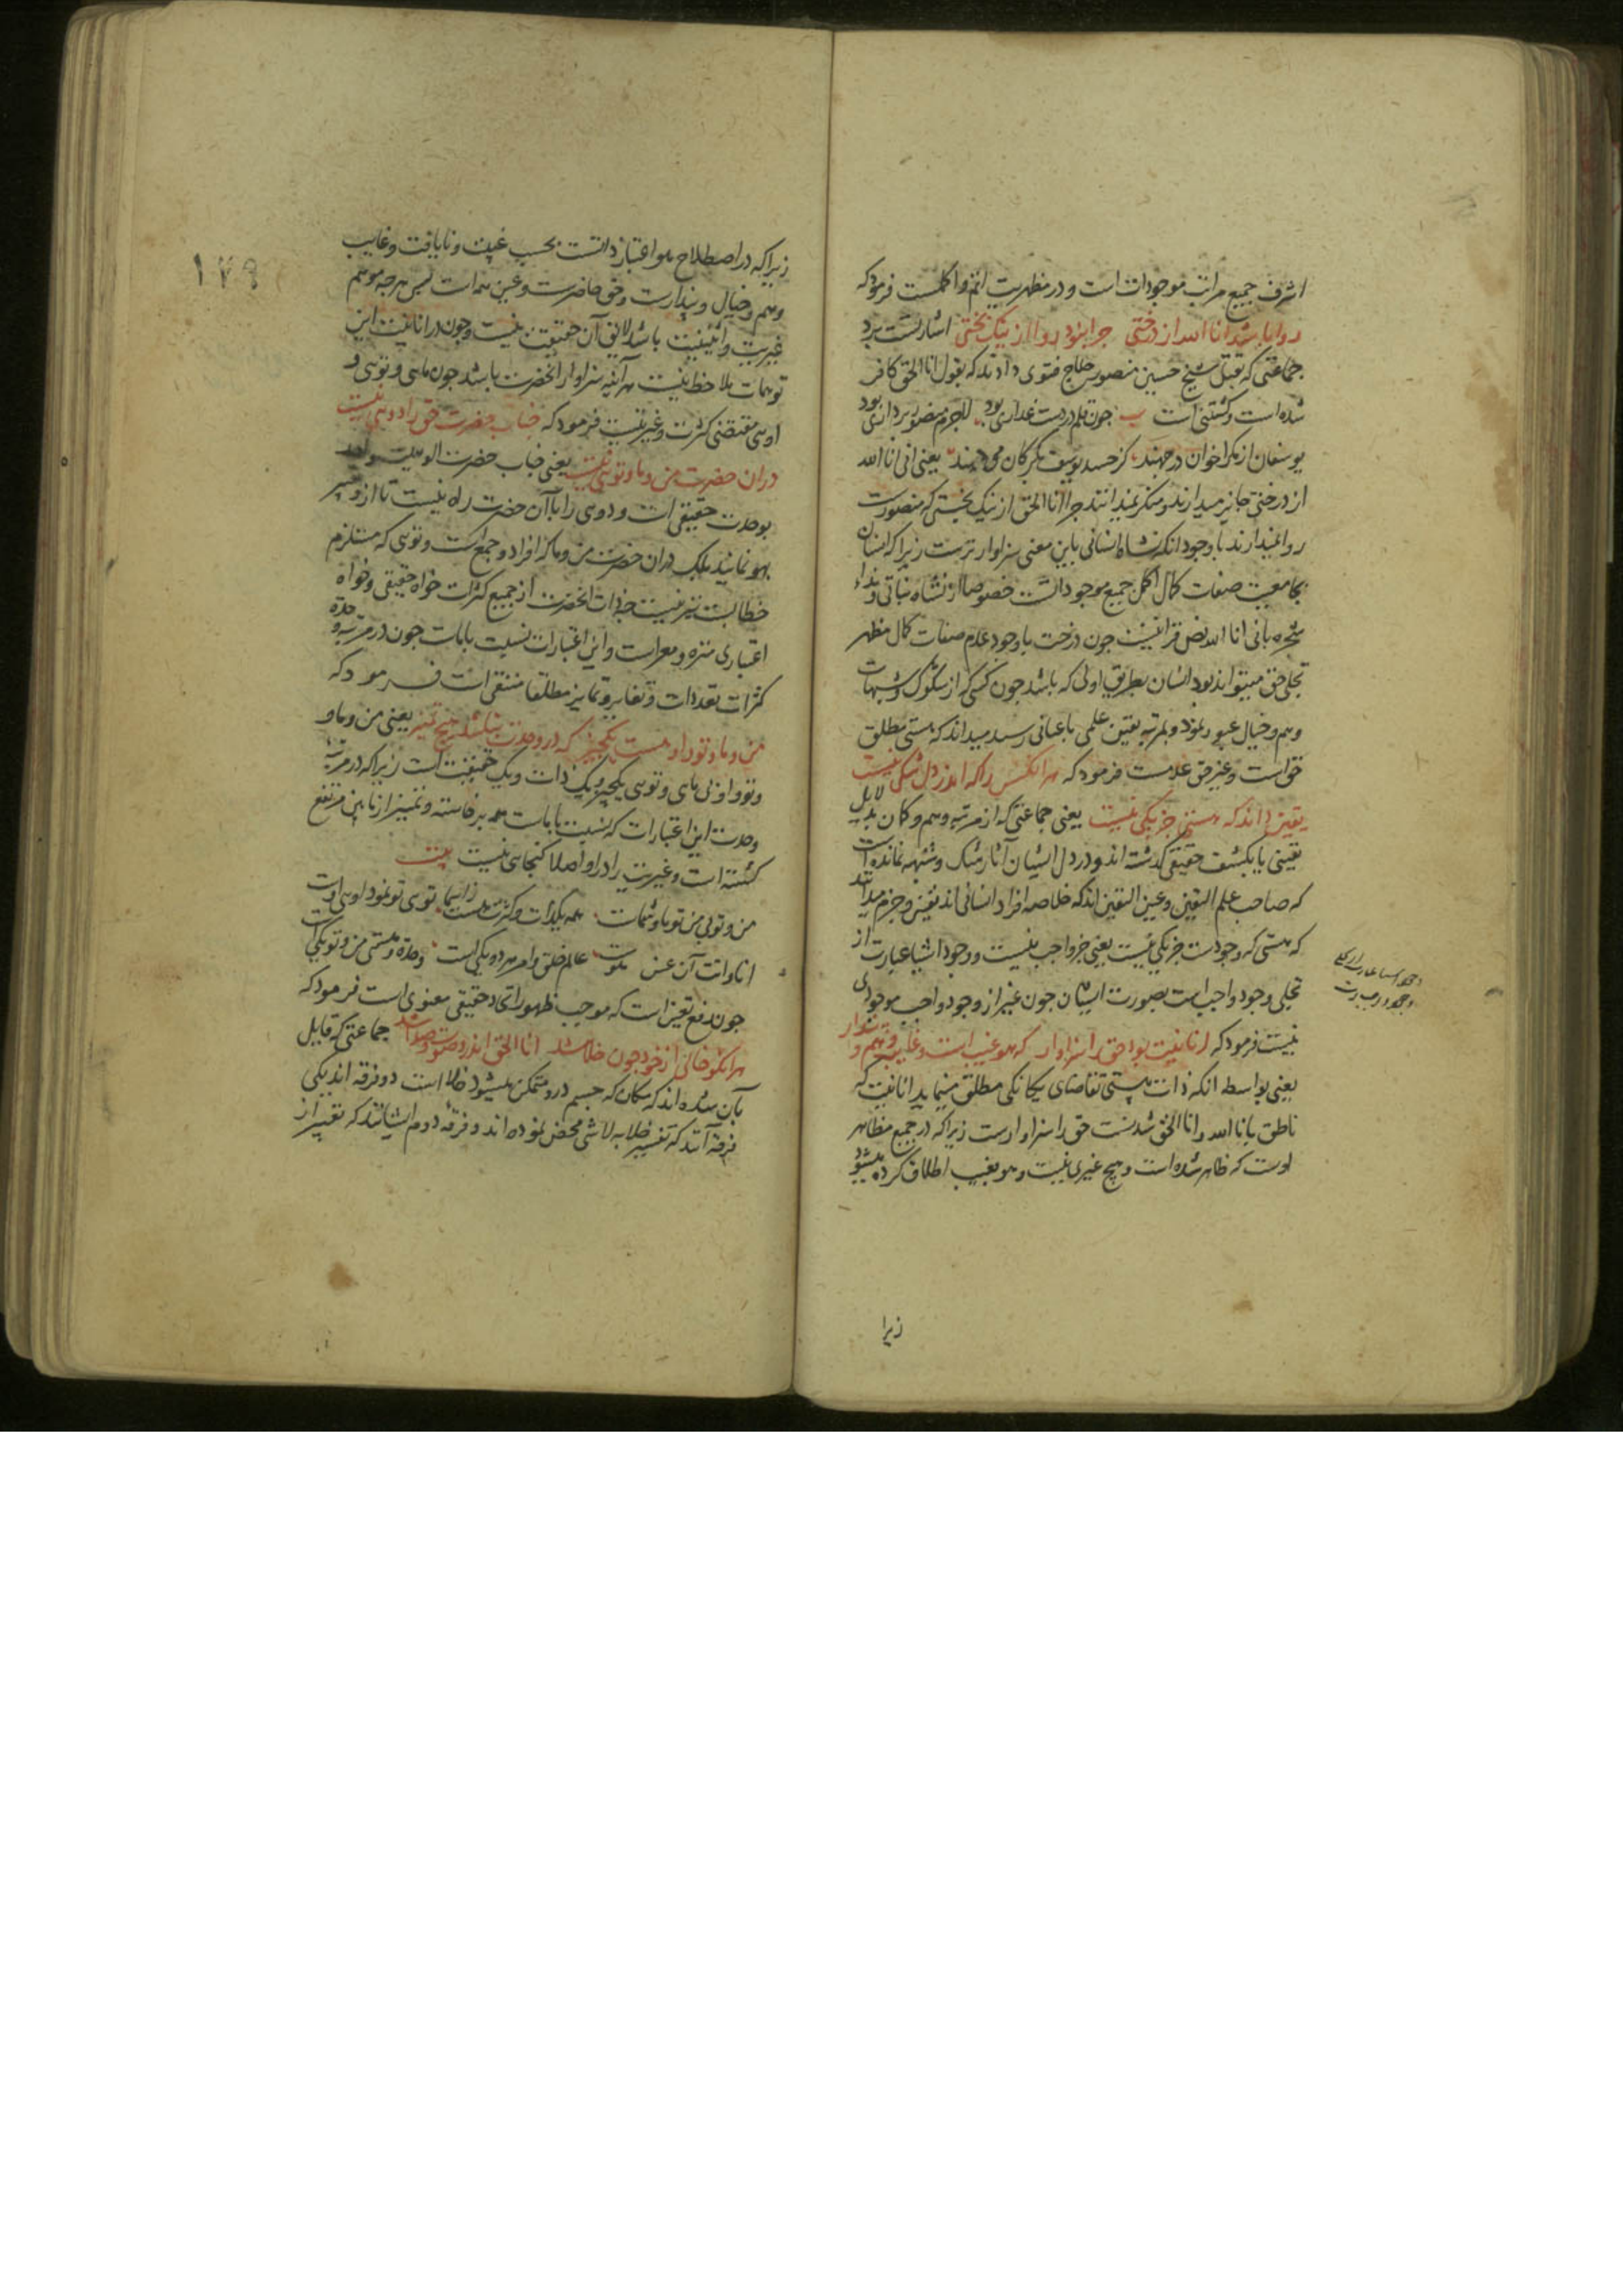 اشرف جمیع مراتب موجودات است و در مظهریت اتم و اکملست فرمود که
روا باشد انا الله از درختی چرا نبود روا از نیک بختی اشارتست برد
جماعتی که بقتل شیخ حسین منصور حلاج فتوی دادند که بقول انا الحق کافر
شده است و کشتنی است چون قلم در دست غداری بود لاجرم منصور بر داری بود
یوسفان از مکر اخوان در چهند کز حسد یوسف بگرگان می دهند یعنی انی انا الله
از درختی جایز میدارند و منکر نمیدانند چرا انا الحق از نیک بختی که منصورست
روا نمیدارند با وجود انکه نشاه انسانی باین معنی سزاوارترست زیرا که انسان
بجامعیت صفات کمال اکمل جمیع موجوداتست خصوصا از نشاه نباتی و نداء
شجره بانی انا الله نص قرآنیست چون درخت با وجود عدم صفات کمال مظهر
تجلی حق میتواند بود انسان بطریق اولی که باشد چون کسی که از شکوک و شبهات
وهم و خیال عبور نمود و بمرتبه یقین علمی یا عیانی رسید میداند که هستی مطلق
حق است و غیر حق عدمست فرمود که هر انکس را که اندر دل شکی نیست
یقین داند که هستی جز یکی نیست یعنی جماعتی که از مرتبه وهم و کمان بدلایل
یقینی یا بکشف حقیقی گذشته اند و در دل ایشان آثار شک و شبهه نمانده است
که صاحب علم الیقین و عین الیقین اند که خلاصه افراد انسانی اند یقین و جزم میدانند
که هستی که وجودست جز یکی نیست یعنی جز واجب نیست و وجود اشیا عبارت از
تجلی وجود واجب است بصورت ایشان چون غیر از وجود واجب موجودی
نیست فرمود که انانیت بود حق را سزاوار که هو غیب است و غایب وهم و پندار
یعنی بواسطه انکه ذات هستی تقاضای یکانکی مطلق مینماید انانیت که
ناطق بانا الله و انا الحق شدنست حق را سزاوارست زیرا که در جمیع مظاهر
اوست که ظاهر شده است و هیچ غیری نیست و هو بغیب اطلاق کرده میشود
زیرا
۱۷۹
زیرا که در اصطلاح هو اعتبار ذاتست بحسب غیبت و نایافت و غایب
وهم و خیال و پندارست و حق حاضرست و عین همه است پس هر چه موهم
غیریت و اثنینیت باشد لایق آن حقیقت نیست و چون در انانیت این
توهمات ملاحظ نیست هر آینه سزاوار انحضرت باشد چون مایی و تویی و
اویی مقتضی کثرت و غیریتست فرمود که جناب حضرت حق را دویی نیست
دران حضرت من و ما و تویی نیست یعنی جناب حضرت الوهیت واحد
بوحدت حقیقی است و دویی را با آن حضرت راه نیست تا ازو تعبیر
بهو نمایند بلکه دران حضرت من و ما که افراد و جمع است و تویی که مستلزم
خطابست نیز نیست چه ذات انحضرت از جمیع کثرات خواه حقیقی و خواه
اعتباری منزه و معراست و این اعتبارات نسبت با ماست چون در مرتبه وحدة
کثرات تعددات و تغایر و تمایز مطلقا منتفی است فرمود که
من و ما و تو و او هست یکچیز که در وحدت نباشد هیچ تمییز یعنی من و ما و
تو و او نی مایی و تویی یکچیز و یک ذات و یک حقیقت است زیرا که در مرتبه
وحدت این اعتبارات که نسبت با ماست همه برخاسته و تمییز از مابین مرتفع
کشته است و غیریت را درو اصلا کنجایی نیست بیت
من و تویی من تو ما و شمات همه یکذات و کثرت ز اسماست تویی تو نمود اویی اوست
انا و انت آن عین هوست عالم خلق و امر هر دو یکی است وحدة هستی من و تو یکیست
چون رفع تعین است که موجب ظهور اتحاد حقیقی معنوی است فرمود که
هر انکو خالی از خود چون خلا شد انا الحق اندرو صوت و صدا شد جماعتی که قایل
بآن شده اند که مکان که جسم درو متمکن میشود خلا است دو فرقه اند یکی
فرقه آنند که تفسیر خلا به لا شی محض نموده اند و فرقه دوم ایشانند که تعبیر از